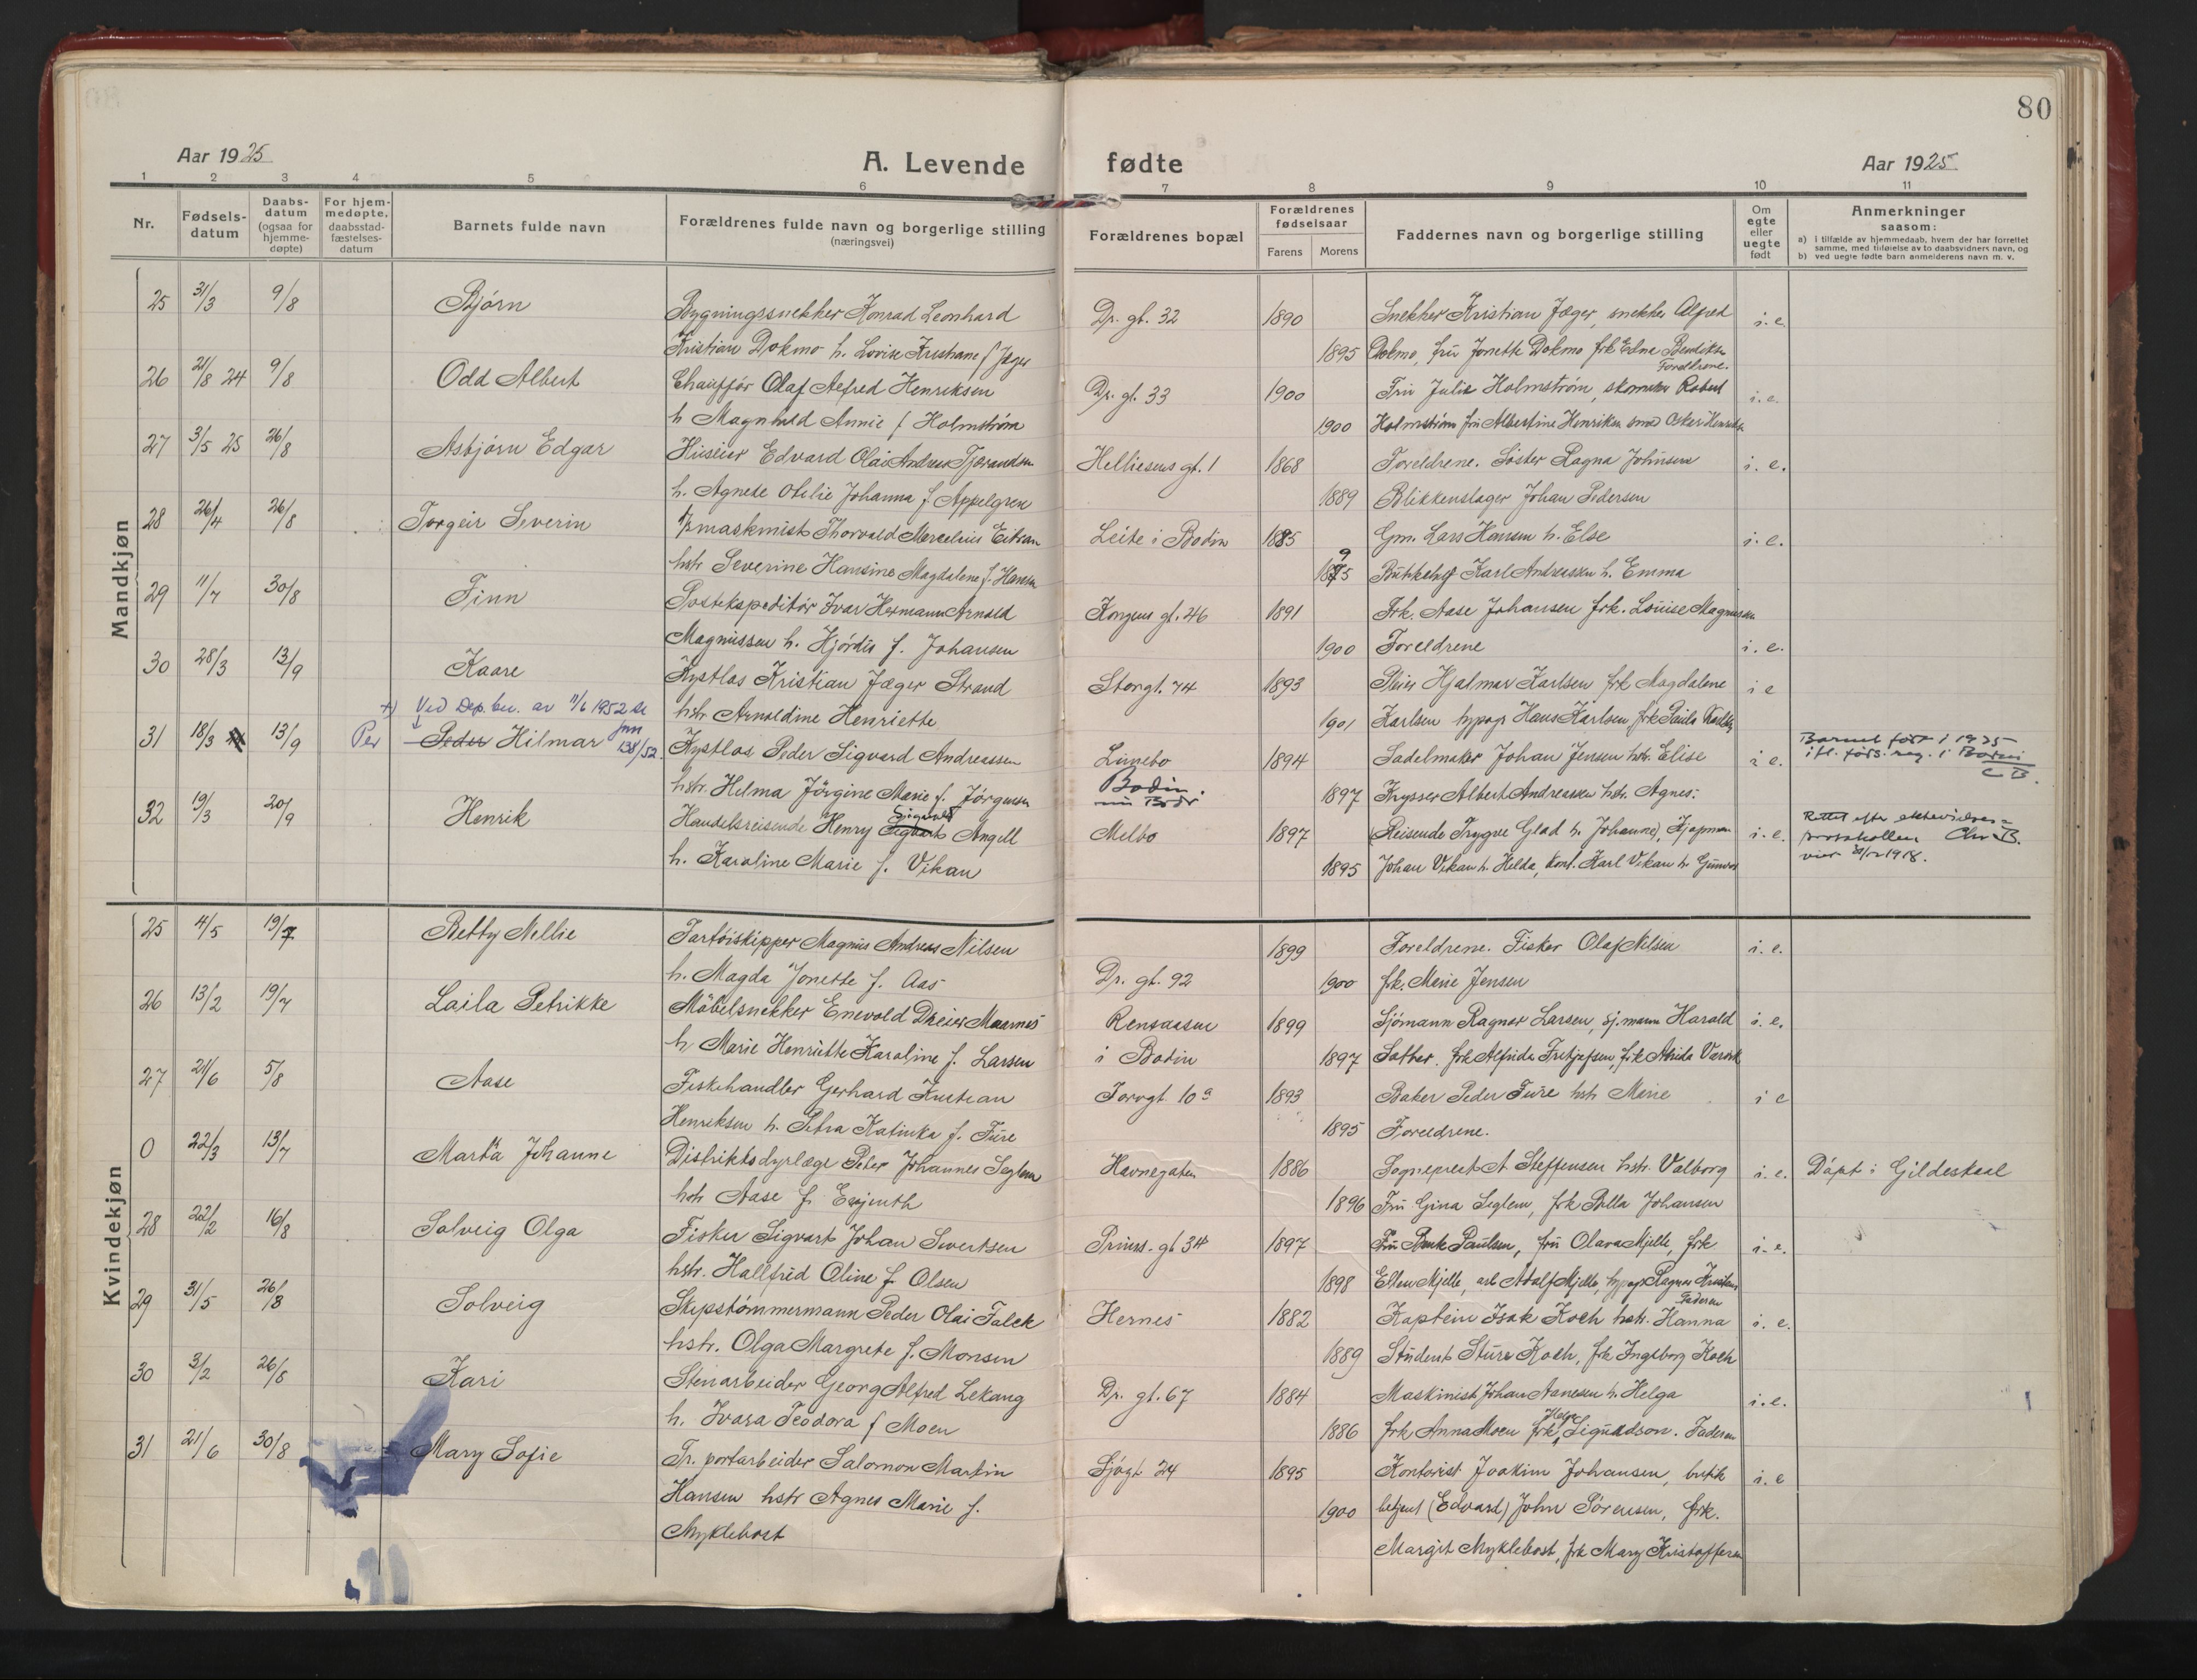 80
Aar 1925
A. Levende fødte
Aar 1925
1 2 3 4 5 6 7 8 9 10 11
Nr.
Fødsels-
datum
Daabs-
datum
(ogsaa for
hjemme-
døpte)
For hjem-
medøpte,
daabsstad-
fæstelses-
datum
Barnets fulde navn
Forældrenes fulde navn og borgerlige stilling
(næringsvei)
Forældrenes bopæl
Forældrenes
fødselsaar
Farens Morens
Faddernes navn og borgerlige stilling
Om
egte
eller
uegte
født
Anmerkninger
saasom:
a) i tilfælde av hjemmedaab, hvem der har forrettet
samme, med tilføielse av to daabsvidners navn, og
b) ved uegte fødte barn anmelderens navn m. v.
Mandkjøn
25 31/3 9/8 Bjørn Bygningssnekker Konrad Leonhard Dr. gt. 32 1890 Snekker Kristian Jæger, snekker Alfred i. e.
Kristian Dokmo h. Lovise Kristiane f Jæger 1895 Dokmo, fru Jonette Dokmo frk Edna Bendiksen
Foreldrene.
26 21/8 24 9/8 Odd Albert Chauffør Olaf Alfred Henriksen Dr. gt. 33 1900 Fru Julie Holmstrøm, skomaker Robert i. e.
h Magnhild Annie f Holmstrøm 1900 Holmstrøm fru Albertine Henriksen smed Osker Henriksen
27 3/5 25 26/8 Asbjørn Edgar Huseier Edvard Olai Andreas Tjærandsen Helliesens gt. 1 1868 Foreldrene. Søster Ragna Johnsen i. e.
h. Agnete Otilie Johanna f Appelgren 1889 Blikkenslager Johan Pedersen
28 26/4 26/8 Torgeir Severin maskinist Thorvald Marcelius Leite i Bodin 1885 Gm. Lars Hansen h. Else i. e.
hstr Severine Hansine Magdalene f. Hansen 9 1875 Karl Andreassen h. Emma
29 11/7 30/8 Finn Postekspeditør Ivar Hermann Arnold Kongens gt. 46 1891 Frk. Aase Johansen frk. Louise Magnussen
Magnussen h. Hjørdis f. Johansen 1900 Foreldrene i. e.
30 28/3 13/9 Kaare Kystlos Kristian Jæger Strand Storgt. 74 1893 Hjalmar Karlsen frk Magdalene i e
hstr Arnoldine Henriette 1901 Karlsen typogr Hans Karlsen frk Paula Karlsen
+) Ved Dep. bev. av 11/6 1952 se
jnr
138/52.
31 18/3 13/9 Per Peder Hilmar Kystlos Peder Sigvard Andreassen Lunebo 1894 Sadelmaker Johan Jensen hstr. Elise i e. Barnet født i 1925
ifl. føds. reg. i Bodin
C B.
hstr. Helma Jørgine Marie f. Jørgensen Bodin. 1897 Krysser Albert Andreassen hstr. Agnes.
nu Bodø
32 19/3 20/9 Henrik Handelsreisende Henry Sigvart Sigvald Angell Melbo 1897 Reisende Trygve Glad h. Johanne, Kjøpmann i. e. Rettet efter ektevielses=
protokollen Chr B.
h. Karoline Marie f. Vikan 1895 Johan Vikan h. Helda, kont. Karl Vikan h. Gunvor 1918.
Kvindekjøn
25 4/5 19/7 Betty Nellie Fartøiskipper Magnus Andreas Nilsen 1899 Foreldrene. Fisker Olaf Nilsen i. e.
h. Magda Jonette f. Aas Dr. gt. 92 1900 frk. Marie Jensen
26 13/2 19/7 Laila Petrikke Møbelsnekker Enevold Dreier Maarnes Rensaasen 1899 Sjømann Ragnar Larsen, sj.mann Harald i. e.
h. Marie Henriette Karoline f. Larsen i Bodin 1897 frk Alfrida Fritjofsen, frk
27 21/6 5/8 Aase Fiskehandler Gerhard Kristian Torvgt 10a 1893 Baker Peder Ture hstr Marie i e
Henriksen h. Petra Katinka f. Ture 1895 Foreldrene.
0 22/3 13/7 Marta Johanne Distriktsdyrlæge Peter Johannes Seglem Havnegaten 1886 Sogneprest A Steffensen hstr. Valborg i. e. Døpt i Gildeskaal
hstr Aase f. 1896 Fru Gina Seglem, frk Bella Johansen
28 22/2 16/8 Solveig Olga Fisker Sigvart Johan Sivertsen Prins. gt 34 1897 Fru Paulsen, fru Olava Mjelle, frk i. e.
hstr. Hallfrid Oline f. Olsen 1898 Ellen Mjelle, arb Adolf Mjelle, typogr Ragnar
29 31/5 26/8 Solveig Skipstømmermann Peder Olai Falck Hernes 1882 Kaptein Isak Koch hstr. Hanna Faderen i. e.
hstr. Olga Margrete f. Monsen 1889 Student Sture Koch, frk Ingeborg Koch
30 3/2 26/8 Kari Stenarbeider Georg Alfred Lekang Dr. gt. 67 1884 Maskinist Johan Aanesen h. Helga i. e.
h. Ivara Teodora f Moen 1886 frk Anna Moen frk Helga Sigurdson. Faderen
31 21/6 30/8 Mary Sofie Tr. portarbeider Salomon Martin Sjøgt 24 1895 Kontorist Joakim Johansen, butik i. e
Hansen hstr Agnes Marie f. 1900 betjent (Edvard) John Sørensen, frk.
Myklebost Margit Myklebost, frk Mary Kristoffersen